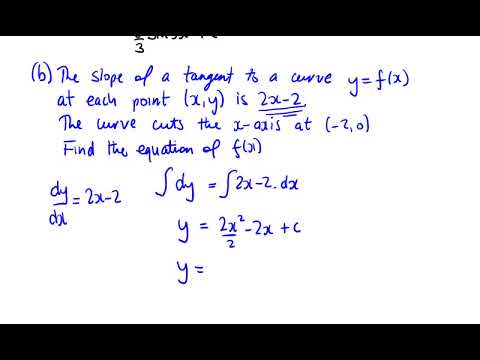 3
(b) The slope of a tangent to a curve y=f(x)
at each point (x,y) is 2x-2.
The curve cuts the x-axis at (-2,0)
Find the equation of f(x)
dy/dx = 2x-2 ∫dy = ∫2x-2.dx
y = 2x²/2 - 2x + c
y =